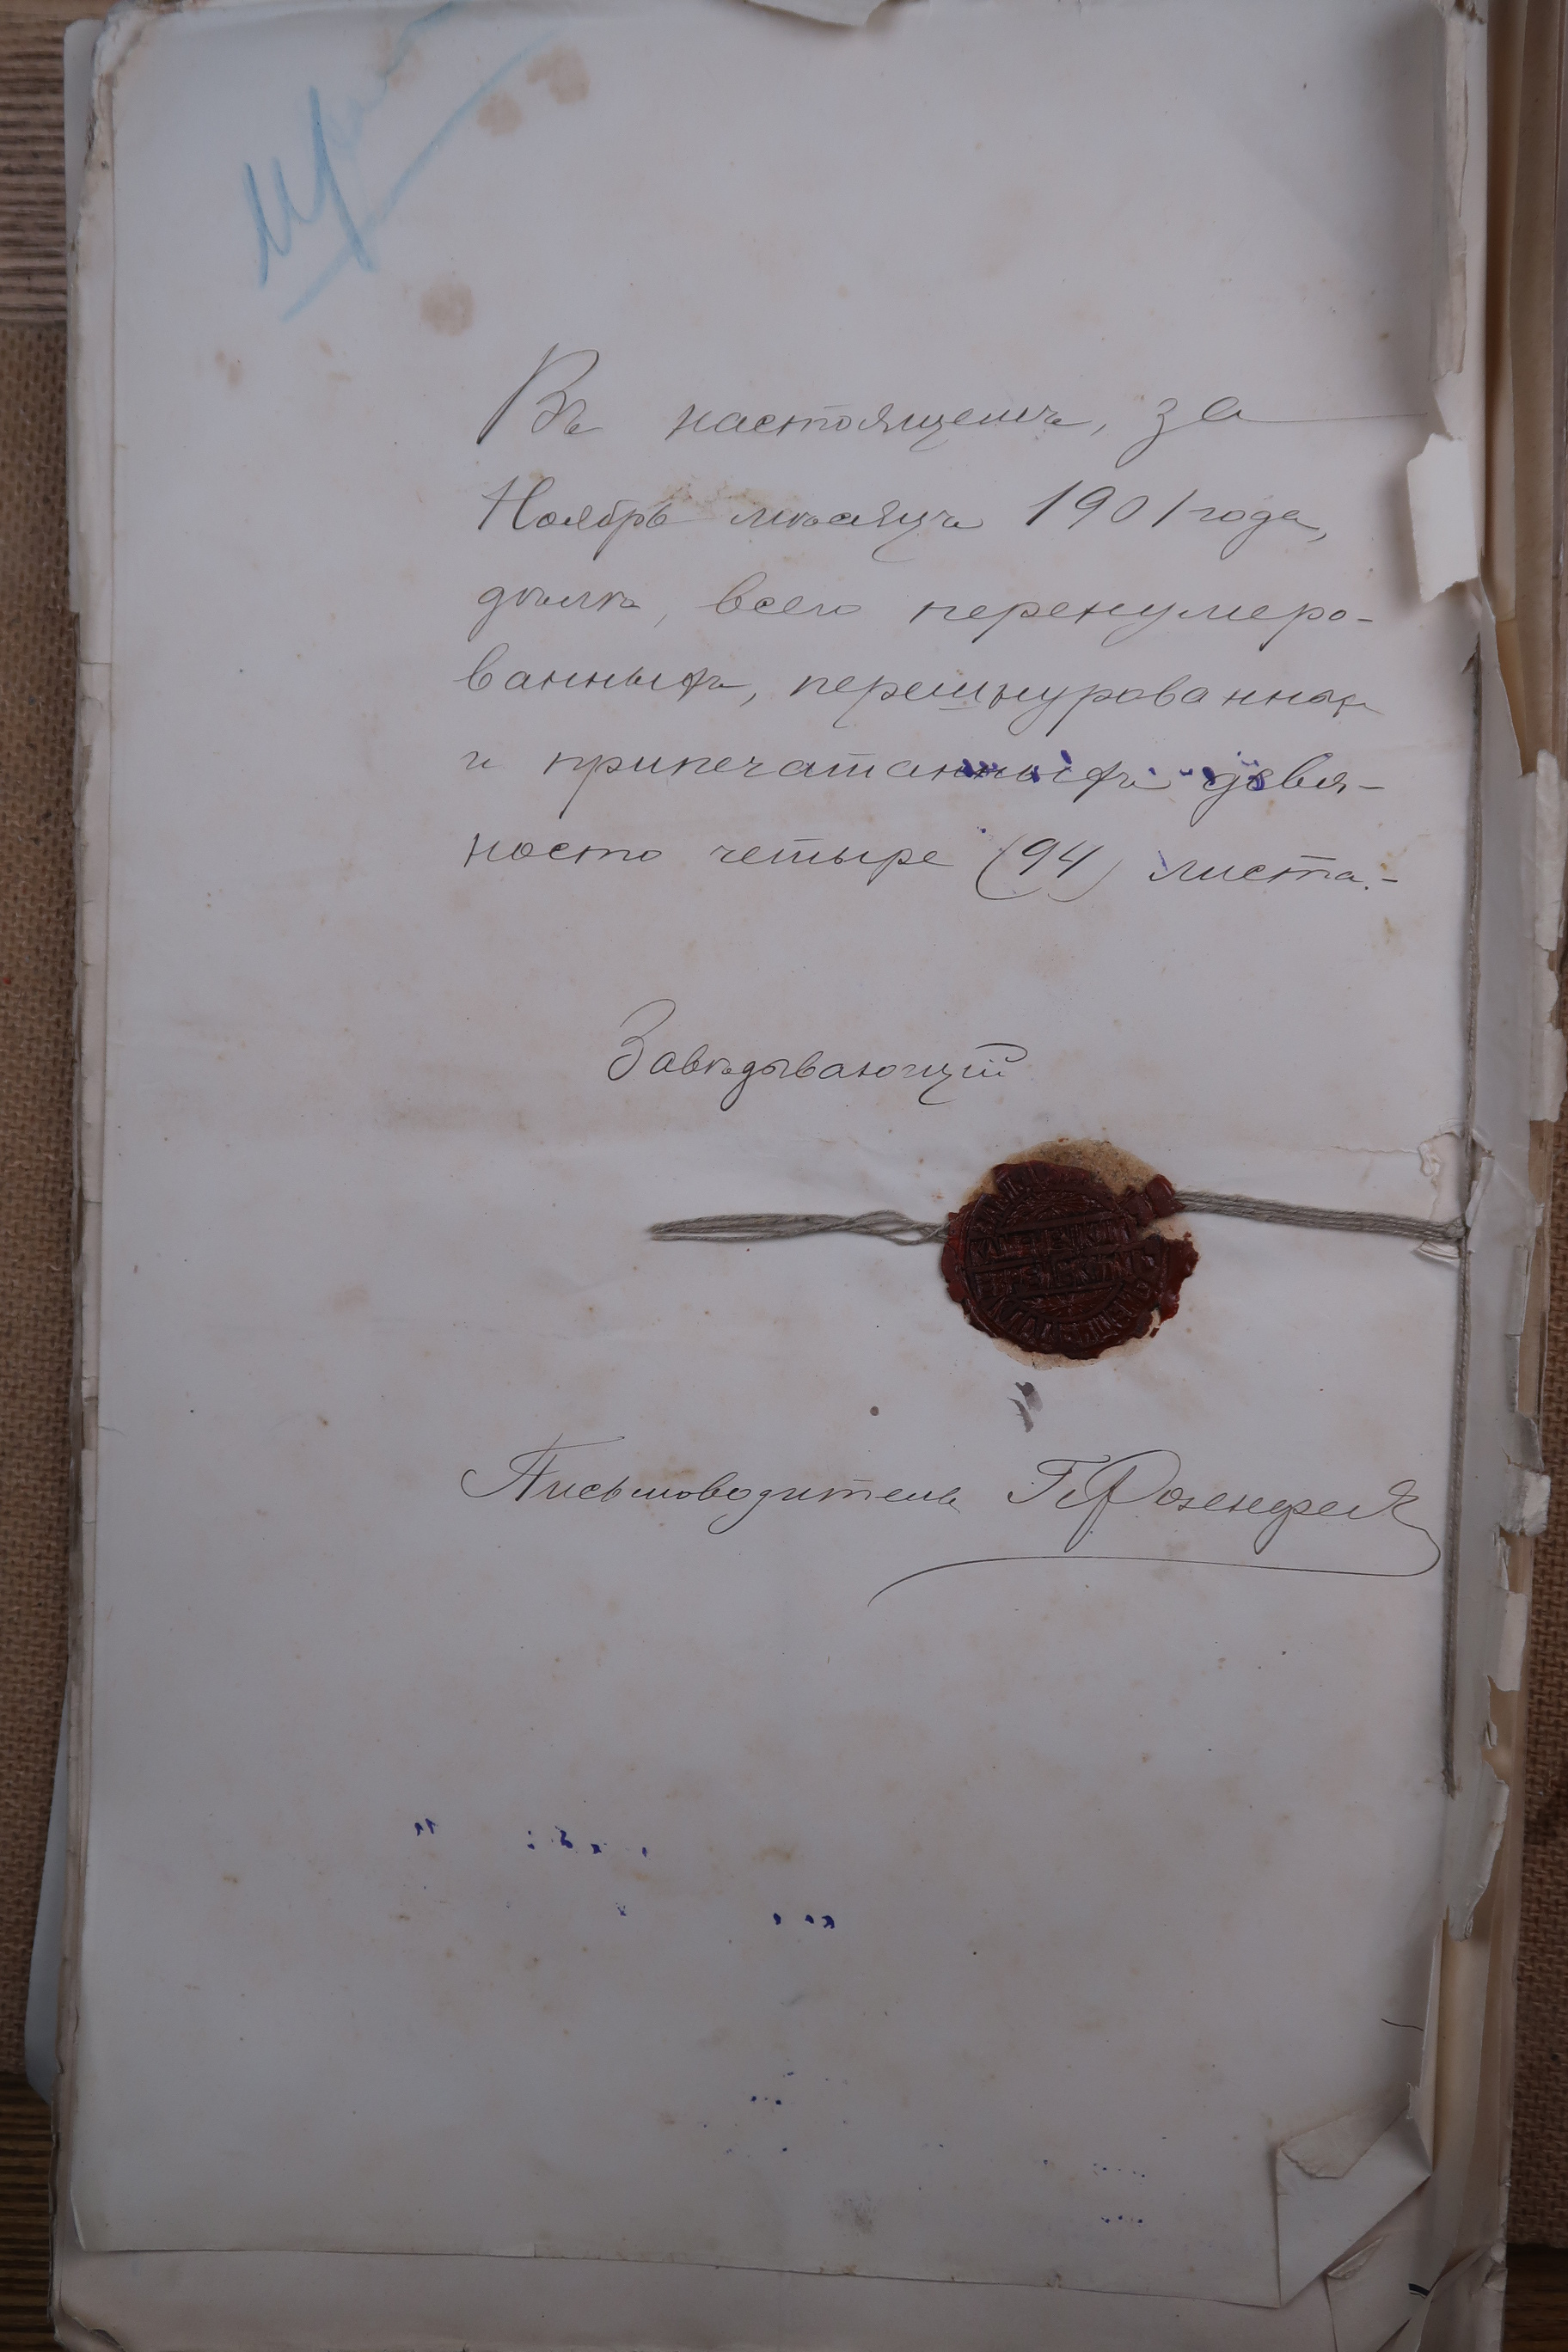 Въ настоящемъ, за
Ноябрь мѣсяцъ 1901 года,
дѣлѣ, всего перенумеро-
ванныхъ, перешнурованныхъ
и припечатанныхъ девя-
носто четыре (94) листа.-
Завѣдывающій
Письмоводитель Г. Розенфельд